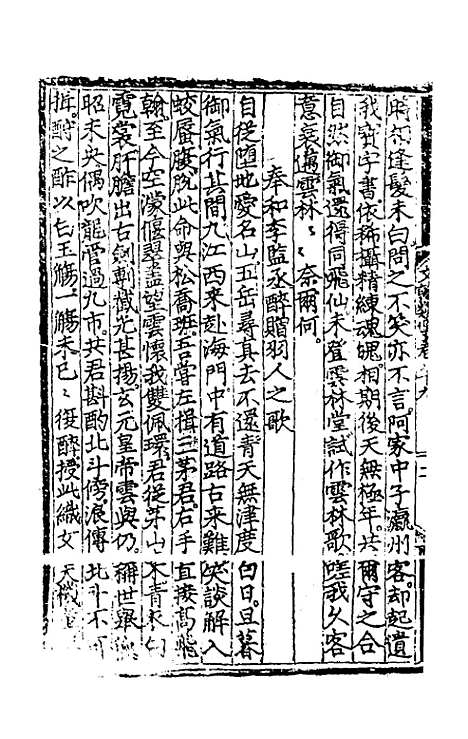 時顏蓬髮未白問之不笑亦不言阿家中子瀛州客却起遺
我寶字書依稀攝精練魂魄相期後天無極年共爾守之合
自然御氣還得同飛仙未登雲林堂試作雲林歌嗟我久客
意衰傷雲林〻〻奈爾何
奉和李監丞醉贈羽人之歌
自從墮地愛名山五岳尋真去不還青天無津度白日且暮
御氣行其間九江西来赴海門中有道路古来難笑談解入
蛟蜃腹脫此命與松喬班吾嘗左揖三茅君右手直接高飛
翰至今空濛偃翠蓋望雲懷我雙佩環君從茅山来青衣
霓裳肝膽出古劍斬慽光甚揚玄元皇帝雲與仍稱世
昭未央偶吹龍管過九市共君斟酌北斗傍浪傳北斗不可
挹酌之酢以白玉觴一觴未已〻復醉授此織女天機